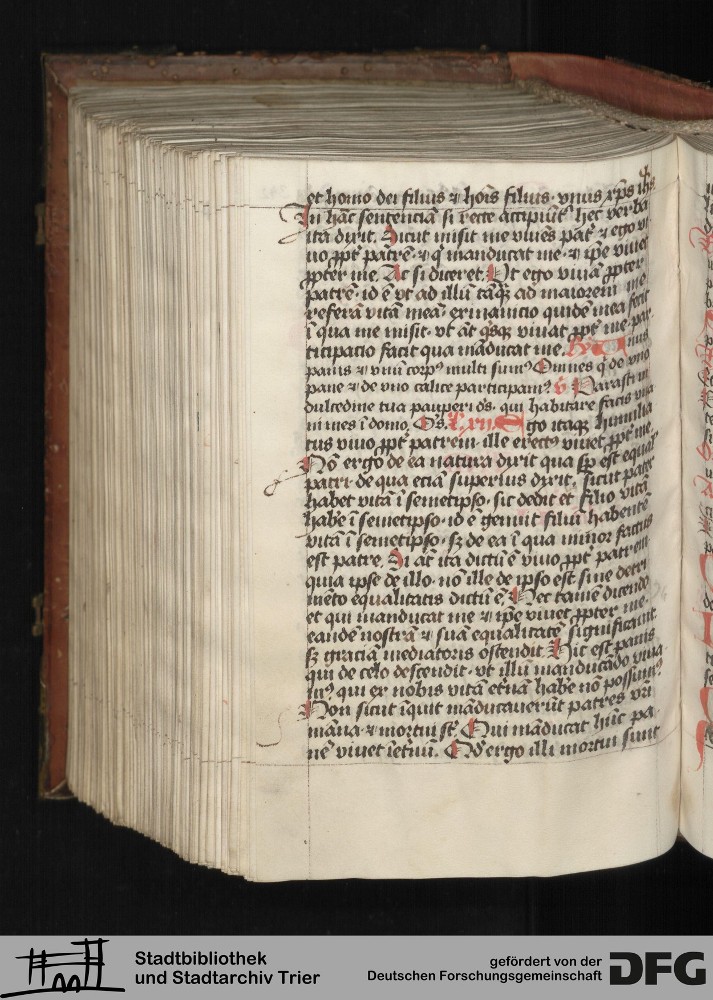 et homo dei filius ⁊ hoīs filius · vnus xp̄s ih̄s
In hāc sentenciā si recte accipiūt hec verba
ita dixit. Sicut misit me viuēs pat̄ ⁊ ego vi
uo ꝓpt̄ patrē · ⁊ q̇ manducat me · ⁊ ip̄e viuet
ꝓpter me. Ac si diceret. Ut ego viuā ꝓpter
patrē · id ē vt ad illū tāq̄ ad maiorem me
referā vitā meā · exinanicio quidē mea fecit
ī qua me misit · vt āt qsqȝ viuat ꝓpt̄ me · par
ticipacio facit qua māducat me. Ry Unus
panis ⁊ vnū corpꝰ multi sumꝰ Omnes q̇ de vno
pane ⁊ de vno calice participamꝰ v̄ Parasti in
dulcedine tua pauperi dſ · qui habitare facis vna
nimes ī domo. Os. Ego itaqȝ humilia
tus viuo ꝓpt̄ patrem · ille erectꝰ viuet ꝓpt̄ me.
Nō ergo de ea natura dixit qua sp̄ est equal̄
patri · de qua eciā superius dixit · sicut pater
habet vitā ī semetipso · sic dedit et filio vitā
habē ī semetipso · id ē genuit filiū habentē
vitā ī semetipso · sȝ de ea ī qua minor factus
est patre. Si āt ita dictū ē viuo ꝓpt̄ patrem
quia ipse de illo · nō ille de ipso est sine detri
mēto equalitatis dictū ē. Nec tamē dicendo
et qui manducat me ⁊ ip̄e viuet ꝓpter me ·
eandē nostrā ⁊ suā equalitatē significauit
sȝ graciā mediatoris ostendit. Hic est panis
qui de celo descendit · vt illū manducādo viua
mꝰ · qui ex nobis vitā et̄nā habē nō possumꝰ
Non sicut īquit māducauerūt patres vr̄i
māna · ⁊ mortui st̄. Qui māducat hūc pa
nē viuet īet̄nū. Qd̄ ergo illi mortui sunt
Stadtbibliothek
und Stadtarchiv Trier
gefördert von der
Deutschen Forschungsgemeinschaft
DFG